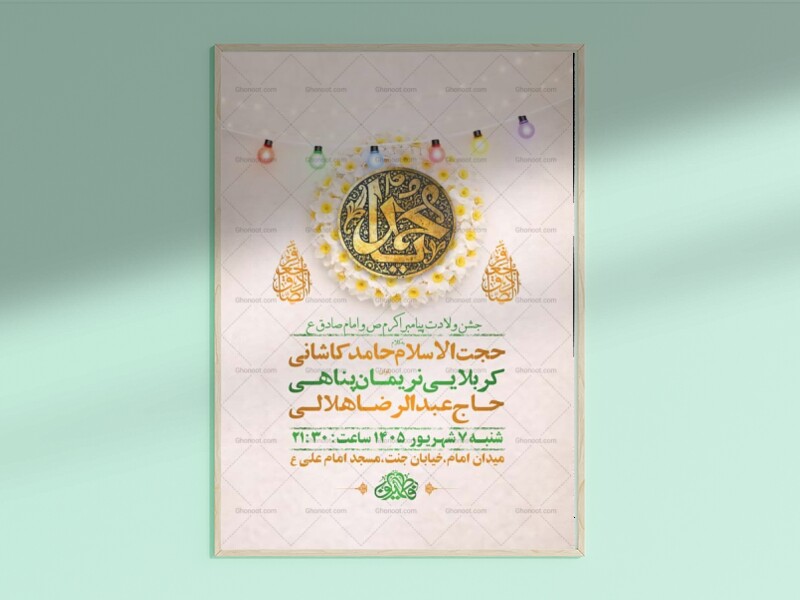 جشن ولادت پیامبر اکرم ص و امام صادق ع
حجت الاسلام حامد کاشانی
کربلایی نریمان پناهی
حاج عبدالرضا هلالی
شنبه ۷ شهریور ۱۴۰۵ ساعت: ۲۱:۳۰
میدان امام، خیابان جنت، مسجد امام علی ع
Ghonoot.com